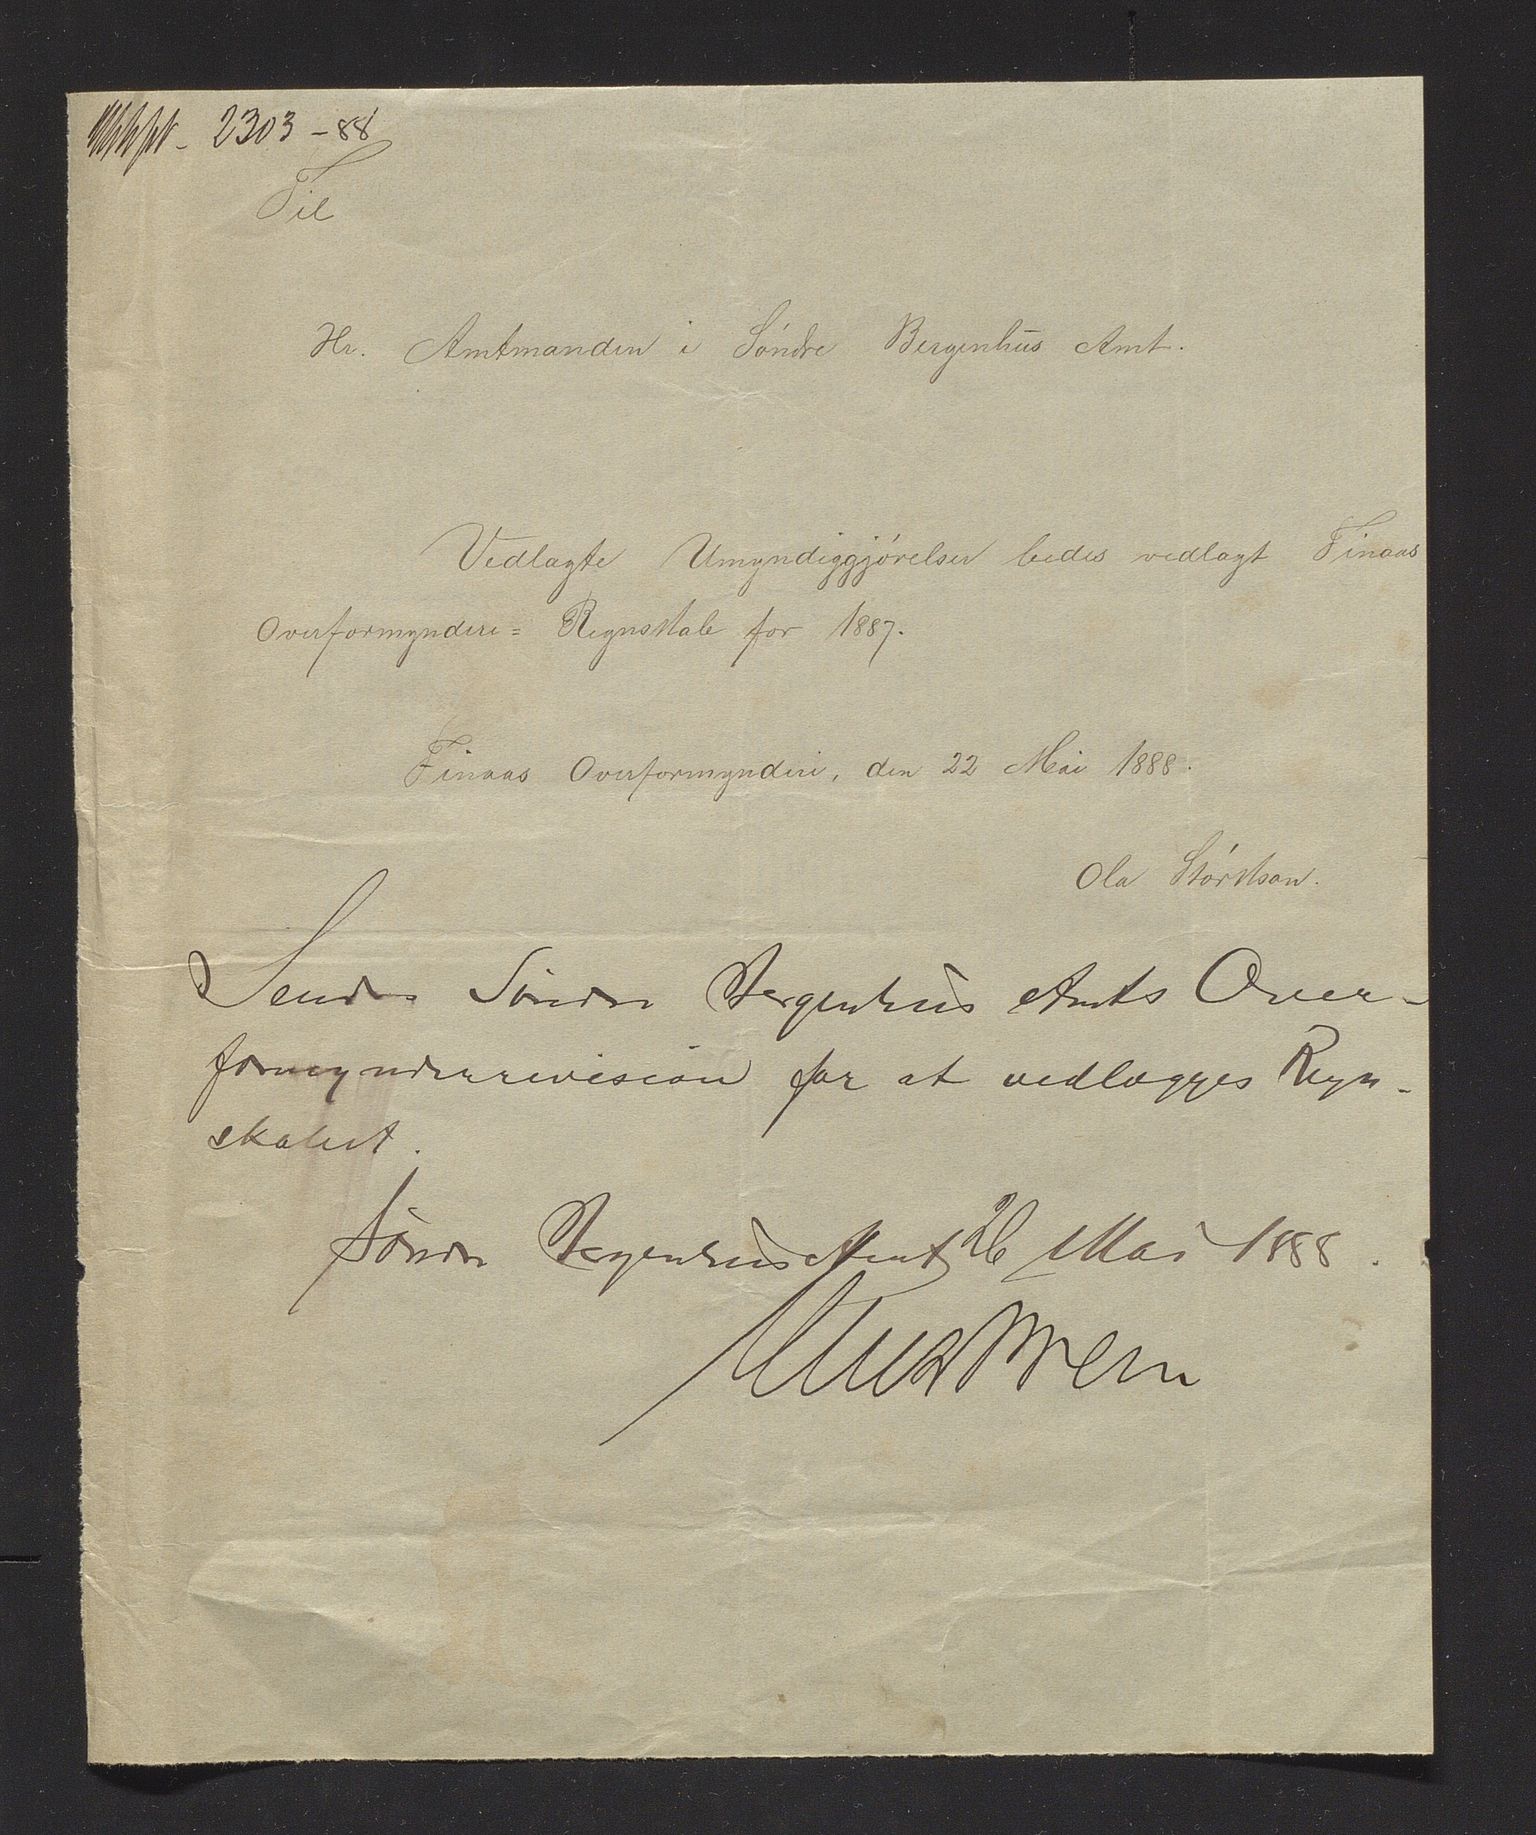 2303 - 88
Til
Hr. Amtmanden i Søndre Bergenhus Amt.
Vedlagte Umyndiggjørelser bedes vedlagt Finaas
Overformynderi= Regnskab for 1887.
Finaas Overformynderi, den 22 Mai 1888.
Ola Størkson.
Sendes Søndre Bergenhus Amts Over-
formynderrevision for at vedlægges Regn-
skabet.
Søndre Bergenhus Amt 26 Mai 1888.